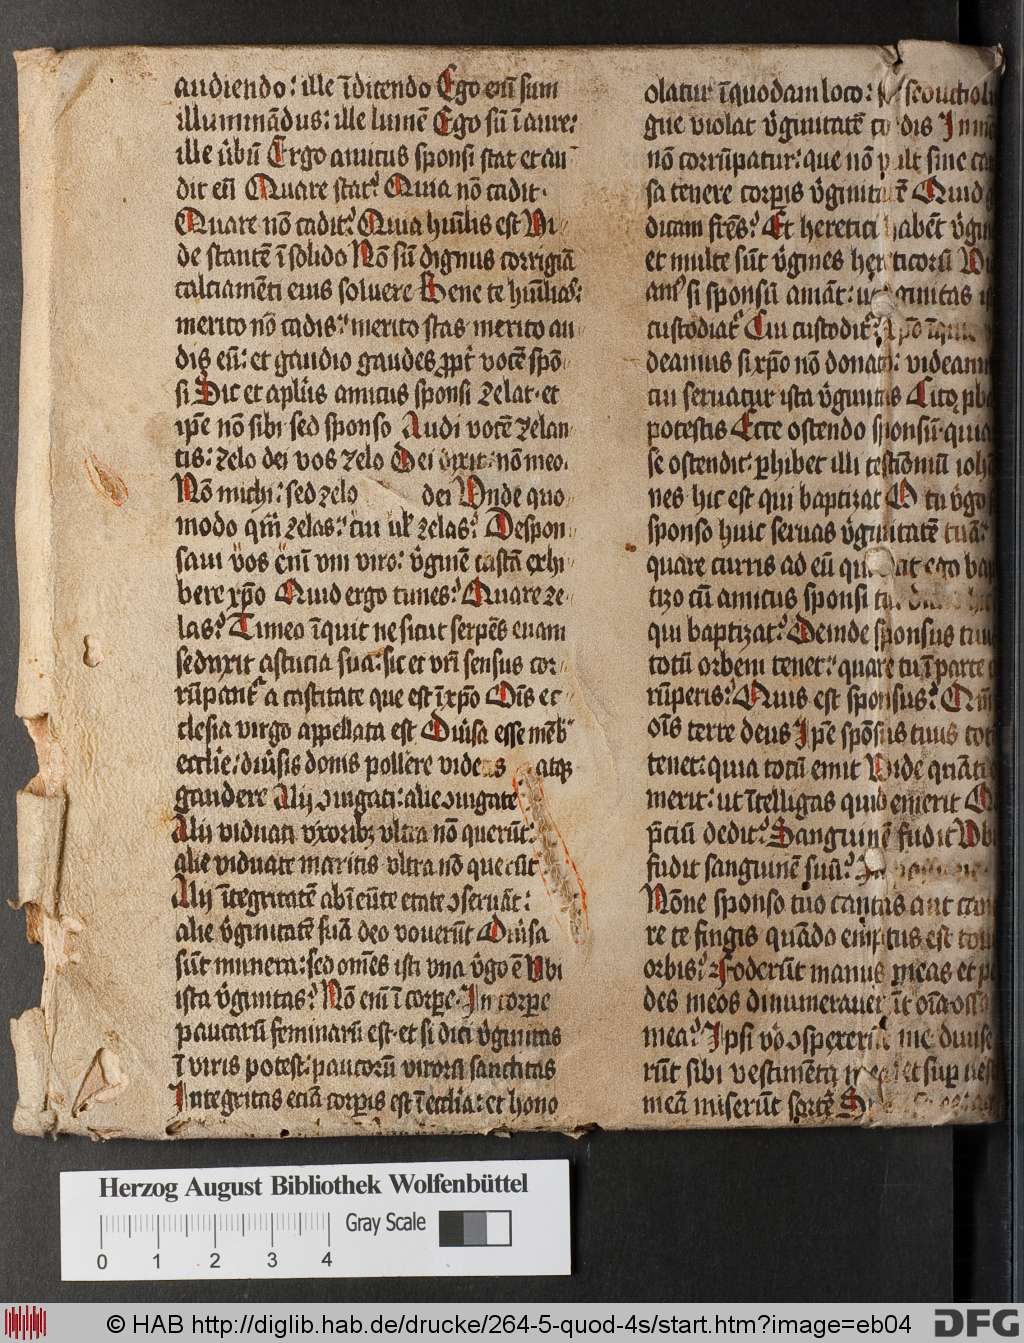 audiendo: ille īdicendo Ego eni᷒ sum
illuminādus: ille lumē Ego sū ī aure:
ille ūbū Ergo amicus sponsi stat et au
dit eū Quare stat? Quia nō cadit.
Quare nō cadit? Quia huīlis est Vi
de stantē ī solido Nō sū dignus corrigiā
calciamēti eius soluere Bene te huīlias:
merito nō cadis: merito stas merito au
dis eū: et gaudio gaudes ꝓpt̄ vocē spō
si Sic et apl̄us amicus sponsi zelat. et
ip̄e nō sibi sed sponso Audi vocē zelan
tis: zelo dei vos zelo Dei dixit: nō meo.
Nō michi: sed zelo dei Unde quo
modo qm̄ zelas? cui ul̄ zelas? Despon
saui uos eni᷒ vni viro: v̄ginē castā exhi
bere xp̄o Quid ergo times? Quare ze
las? Timeo īquit ne sicut serpēs euam
seduxit astucia sua: sic et vr̄i sensus cor
rūpant᷑ a castitate que est ī xp̄o Oīs ec
clesia virgo appellata est Diūsa esse mēb
eccl̄ie/ diūsis donis pollere videas atqꝫ
gaudere Alij ꝯiugati: alie ꝯiugate
Alij viduati vxoribꝫ vltra nō querūt:
alie viduate maritis vltra nō querūt
Alij ītegritatē ab īeūte etate ꝯseruāt:
alie v̄ginitatē suā deo vouerūt Diūsa
sūt munera: sed om̄es isti vna v̄go ē Vbi
ista v̄ginitas? Nō eni᷒ ī corꝑe. In corꝑe
paucarū feminarū est. et si dici v̄ginitas
ī viris potest: paucorū virorū sanctitas
Integritas eciā corꝑis est ī eccl̄ia: et hono
olatur īquodam loco:
gue violat v̄ginitatē cordis In
nō corrūpatur: que nō vult sine
sa tenere corꝑis v̄ginitatē Quid
dicam fr̄es? Et heretici habēt
et multe sūt v̄gines hereticorū
am᷒ si sponsū amāt: ut v̄ginitas
custodiat᷑ Cui custodit᷑? xp̄o īquit
deamus si xp̄o nō donato: videam
cui seruatur ista v̄ginitas Cito
potestis Ecce ostendo sponsū. quia
se ostendit: ꝑhibet illi testimōniū ioh̄
nes hic est qui baptizat O tu v̄go
sponso huic seruas v̄ginitatē tuā:
quare curris ad eū qui dicit ego bap
tizo cū amicus sponsi
qui baptizat? Deinde sponsus tuus
totū orbem tenet: quare tu ī parte
rūperis? Quis est sponsus?
oīs terre deus Ip̄e spōsus tuus tot
tenet: quia totū emit Vide quāti
merit: ut ītelligas quid emerit
p̄ciū dedit? Sanguinē fudit Vbi
fudit sanguinē suū?
Nōne sponso tuo cantas
re te fingis quādo emptus est totus
orbis? Foderūt manus meas et pe
des meos dinumerauerūt oīa ossa
mea? Ipsi v̄o ꝯspexerūt me diuise
rūt sibi vestimēta mea et suꝑ ues
meā miserūt sortē
Herzog August Bibliothek Wolfenbüttel
Gray Scale
0 1 2 3 4
© HAB http://diglib.hab.de/drucke/264-5-quod-4s/start.htm?image=eb04
DFG